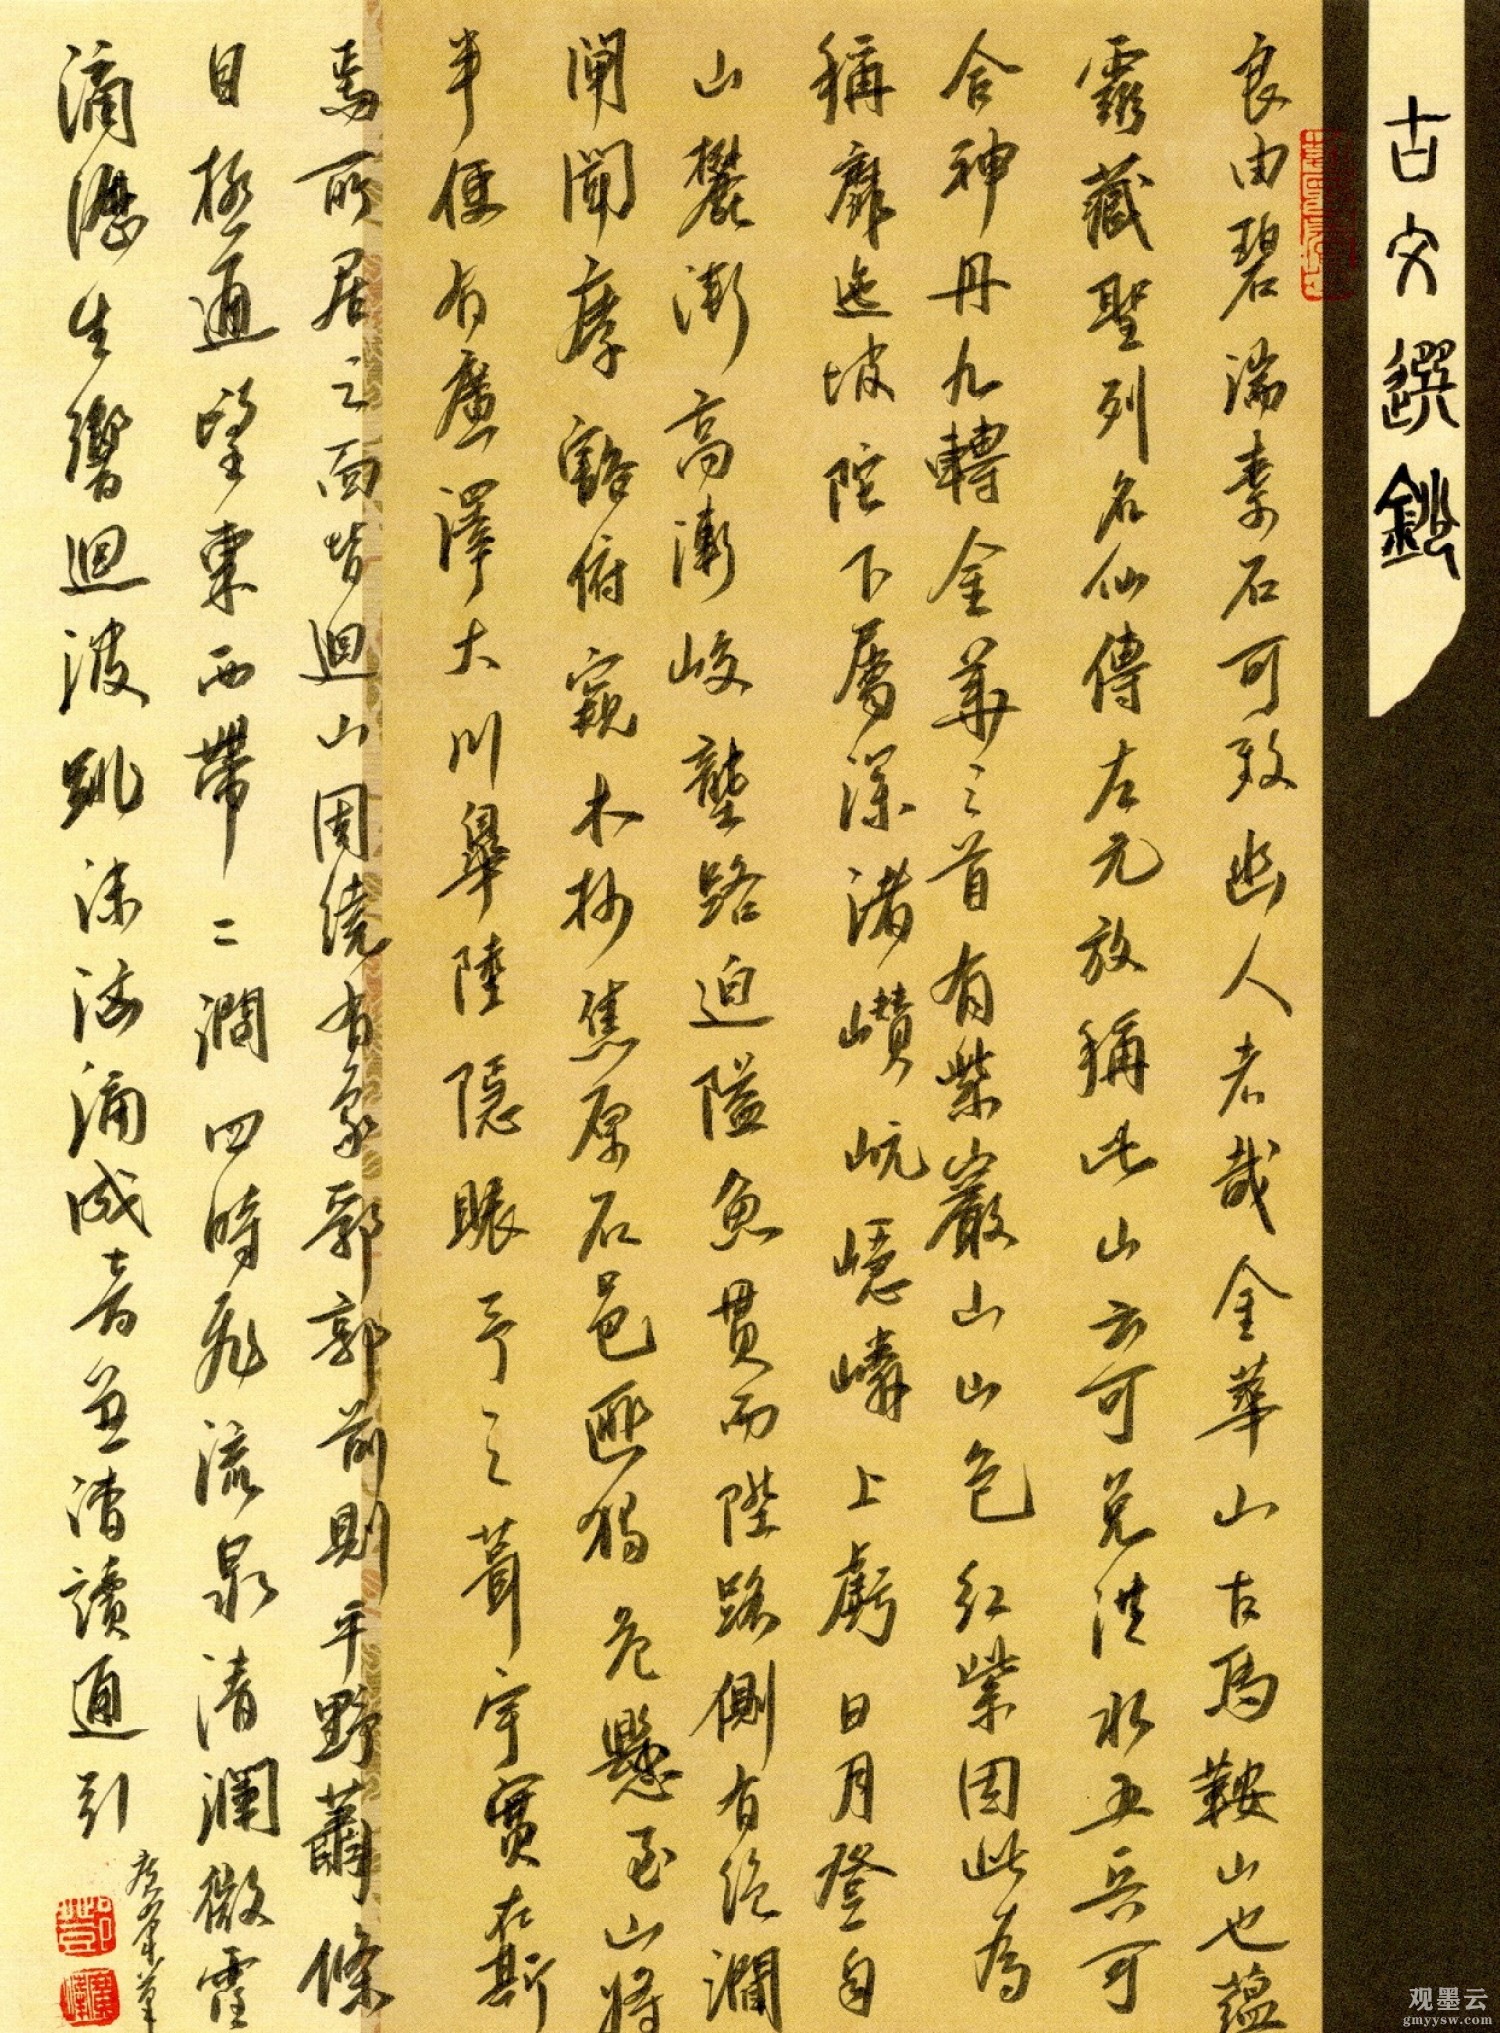 古文選鈔
良由碧湍素石可致幽人者哉金華山古馬鞍山也蘊
靈藏聖列名仙傳左元放稱此山云可免洪水五兵可
合神丹九轉金華之首有紫巖山山色紅紫因此為
稱靡迤坡陀下屬深渚巑岏嶾嶙上虧日月登自
山麓漸高漸峻壟路迫隘魚貫而陞路側有絕澗
閘聞摩豁俯窺木杪焦原石邑匪獨危懸至山將
半便有廣澤大川皋陸隱賑予之葺宇實在斯
焉所居之面皆迴山周繞有象郛郭前則平野蕭條
目極通望東西帶二澗四時飛流泉清瀾微霪
滴瀝生響迴波跳沫洶涌成音並漕瀆通引
观墨云
gmyysw.com